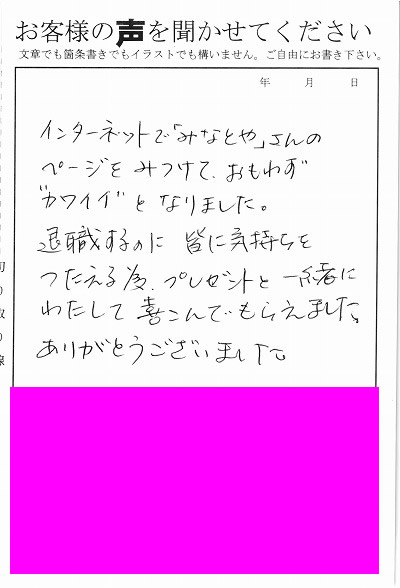 お客様の声を聞かせてください
文章でも箇条書きでもイラストでも構いません。ご自由にお書き下さい。
年 月 日
インターネットで「みなとや」さんの
ページをみつけて、おもわず
"カワイイ"となりました。
退職するのに 皆に気持ちを
つたえる為、プレゼントと 一緒に
わたして 喜こんでもらえました。
ありがとうございました。
切り取り線